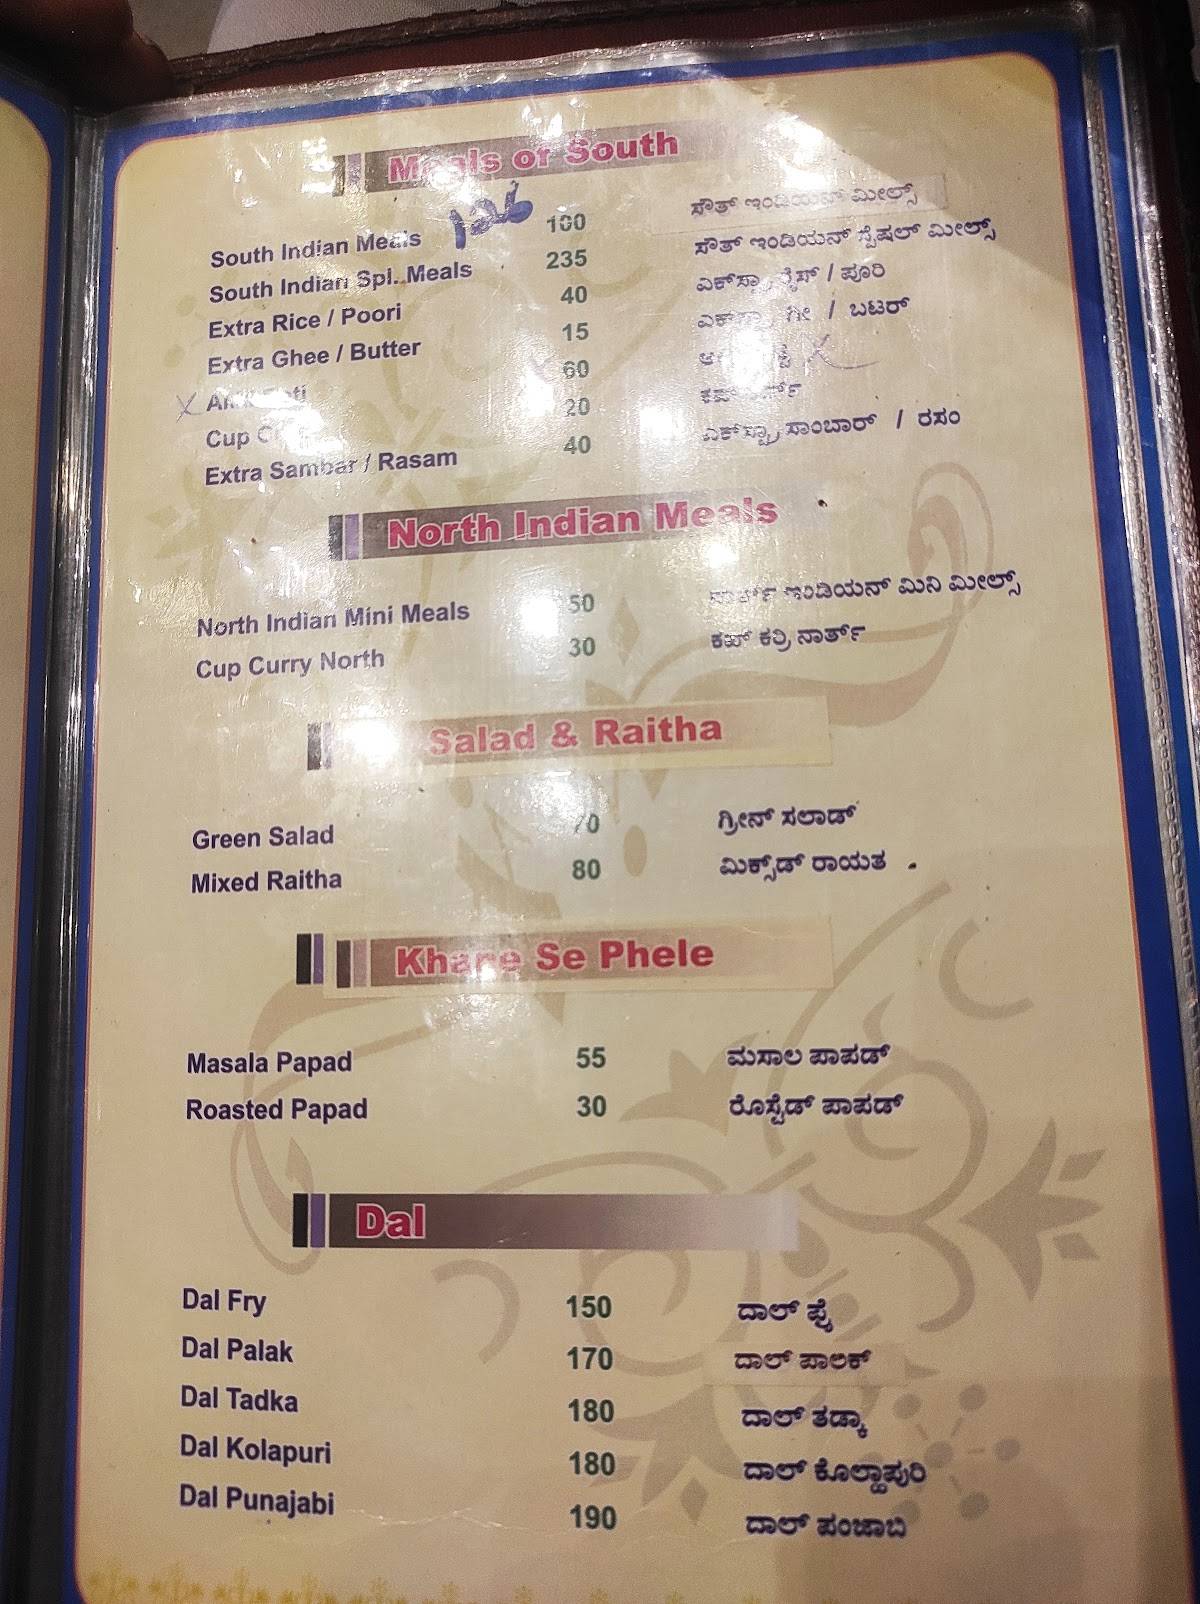 Meals of South
126
South Indian Meals 100 ಸೌತ್ ಇಂಡಿಯನ್ ಮೀಲ್ಸ್
South Indian Spl. Meals 235 ಸೌತ್ ಇಂಡಿಯನ್ ಸ್ಪೆಷಲ್ ಮೀಲ್ಸ್
Extra Rice / Poori 40 ಎಕ್‌ಸ್ಟ್ರಾ ರೈಸ್ / ಪೂರಿ
Extra Ghee / Butter 15 ಎಕ್‌ಸ್ಟ್ರಾ ಗೀ / ಬಟರ್
X 60 X
Cup 20 ಕಪ್
Extra Sambar / Rasam 40 ಎಕ್‌ಸ್ಟ್ರಾ ಸಾಂಬಾರ್ / ರಸಂ
North Indian Meals
North Indian Mini Meals 50 ನಾರ್ತ್ ಇಂಡಿಯನ್ ಮಿನಿ ಮೀಲ್ಸ್
Cup Curry North 30 ಕಪ್ ಕರ್ರಿ ನಾರ್ತ್
Salad & Raitha
Green Salad 70 ಗ್ರೀನ್ ಸಲಾಡ್
Mixed Raitha 80 ಮಿಕ್ಸ್‌ಡ್ ರಾಯತ
Khane Se Phele
Masala Papad 55 ಮಸಾಲ ಪಾಪಡ್
Roasted Papad 30 ರೊಸ್ಟೆಡ್ ಪಾಪಡ್
Dal
Dal Fry 150 ದಾಲ್ ಫ್ರೈ
Dal Palak 170 ದಾಲ್ ಪಾಲಕ್
Dal Tadka 180 ದಾಲ್ ತಡ್ಕಾ
Dal Kolapuri 180 ದಾಲ್ ಕೊಲ್ಹಾಪುರಿ
Dal Punajabi 190 ದಾಲ್ ಪಂಜಾಬಿ